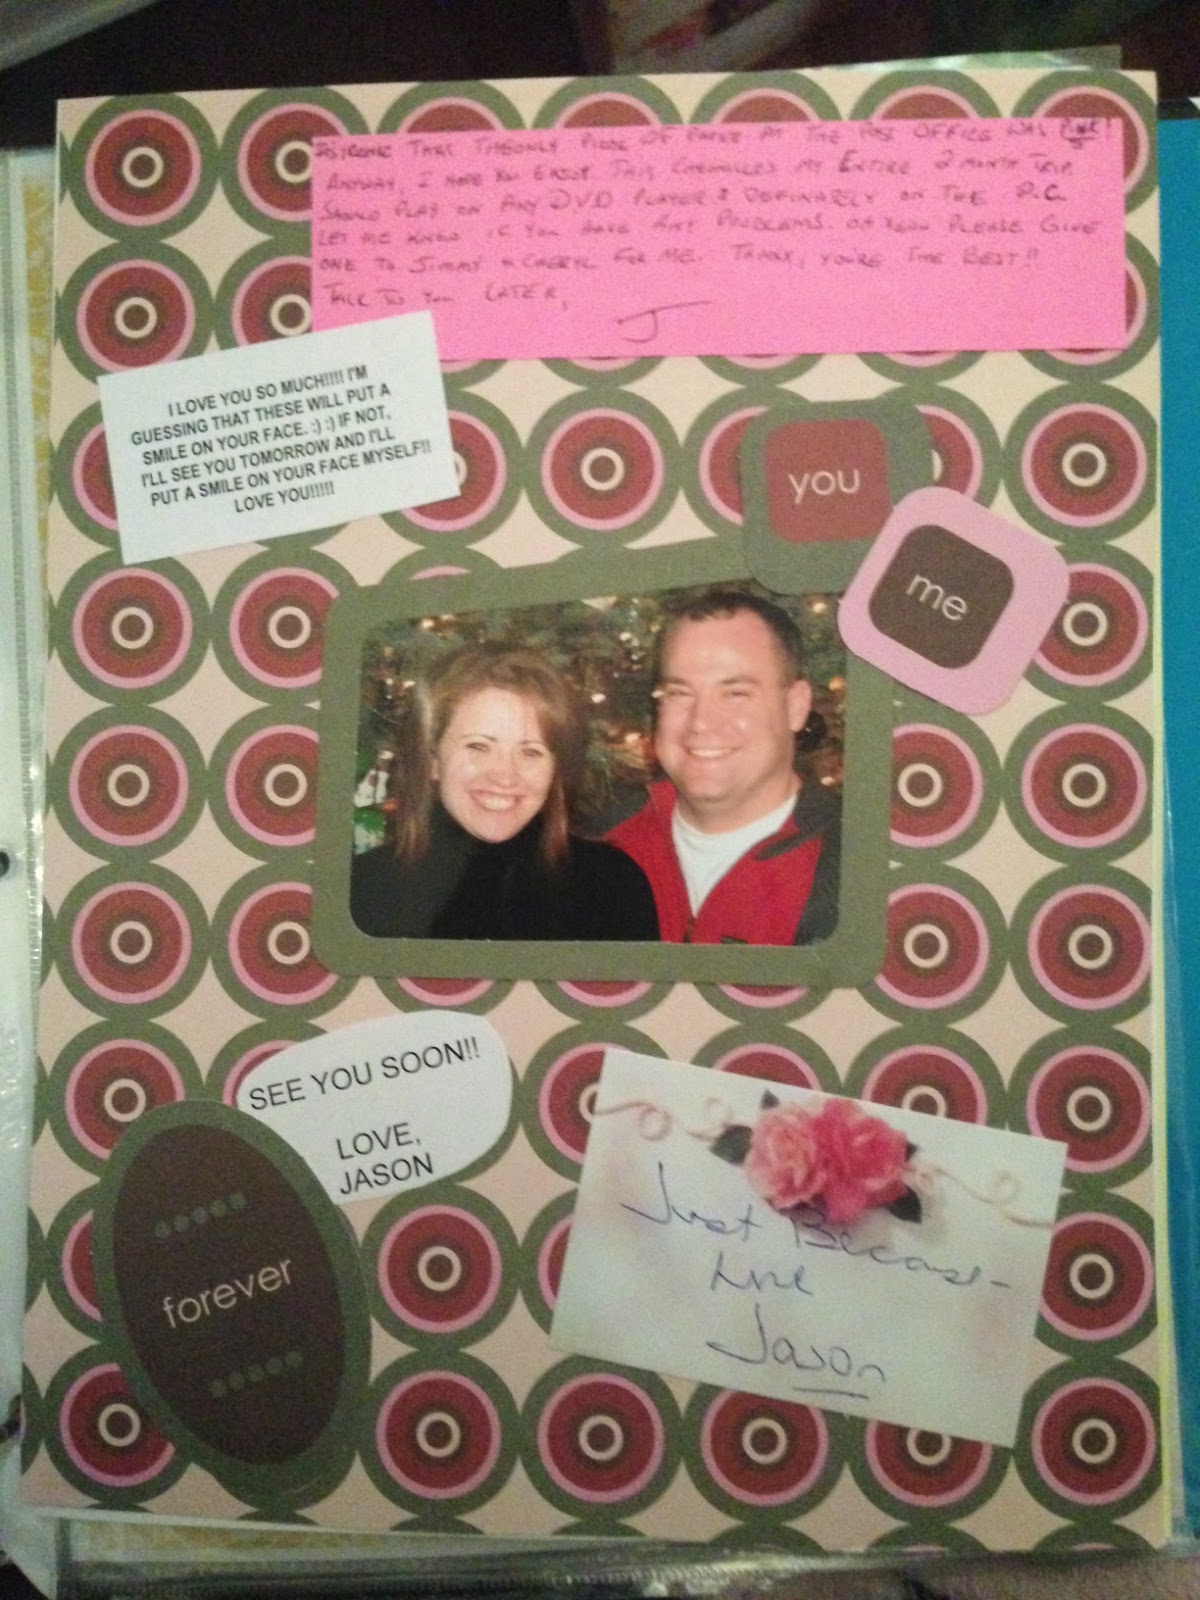 THAT THE ONLY PIECE OF PAPER AT THE POST OFFICE WAS PINK!
ANYWAY, I HOPE YOU ENJOY. THIS CHRONICLES MY ENTIRE 2 MONTH TRIP.
SHOULD PLAY ON ANY D.V.D PLAYER & DEFINATELY ON THE P.C.
LET ME KNOW IF YOU HAVE ANY PROBLEMS. OH YEAH PLEASE GIVE
ONE TO JIMMY & CHERYL FOR ME. THANX, YOU'RE THE BEST!!
TALK TO YOU LATER,
J
I LOVE YOU SO MUCH!!!! I'M
GUESSING THAT THESE WILL PUT A
SMILE ON YOUR FACE. :) :) IF NOT,
I'LL SEE YOU TOMORROW AND I'LL
PUT A SMILE ON YOUR FACE MYSELF!!
LOVE YOU!!!!!
you
me
SEE YOU SOON!!
LOVE,
JASON
forever
Just Because-
Love
Jason